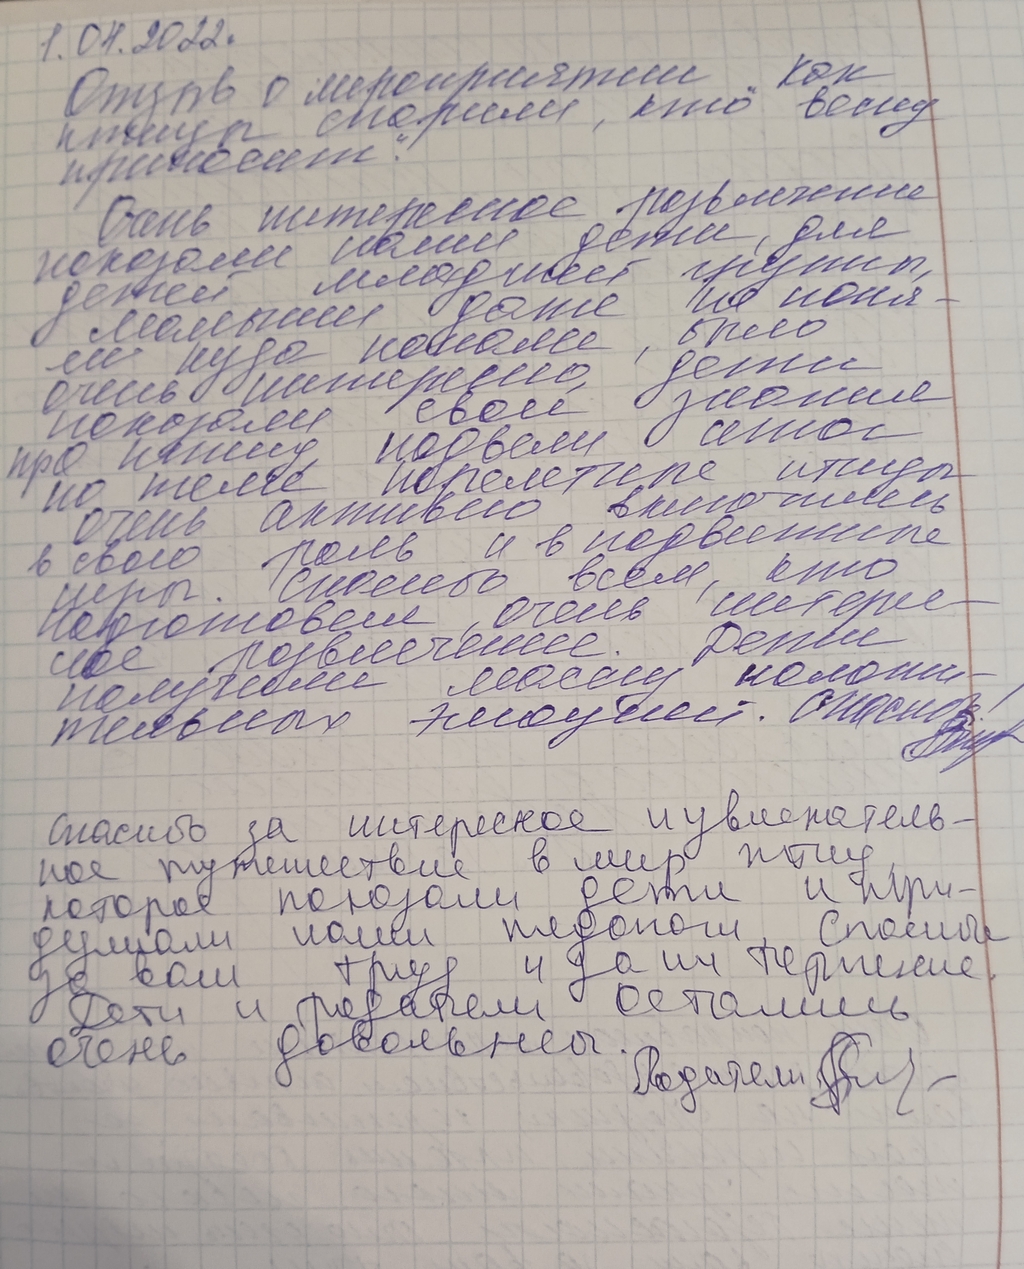 1.04.2022.
Отзыв о мероприятии "Как
птицы спорили, кто весну
приносит".
Очень интересное развлечение
показали наши дети, для
детей младшей группы,
малыши даже не поня-
ли куда попали, было
очень интересно, дети
показали свои знания
про птиц, подвели итог
по теме перелетные птицы
очень активно включились
в свою роль и в подвижные
игры. Спасибо всем, кто
подготовил очень интере-
сное развлечение. Дети
получили массу положи-
тельных эмоций. Спасибо!
Спасибо за интересное и увлекатель-
ное путешествие в мир птиц,
которое показали дети и при-
думали наши педагоги. Спасибо
за ваш труд и за их терпение.
Дети и родители остались
очень довольны.
Родители